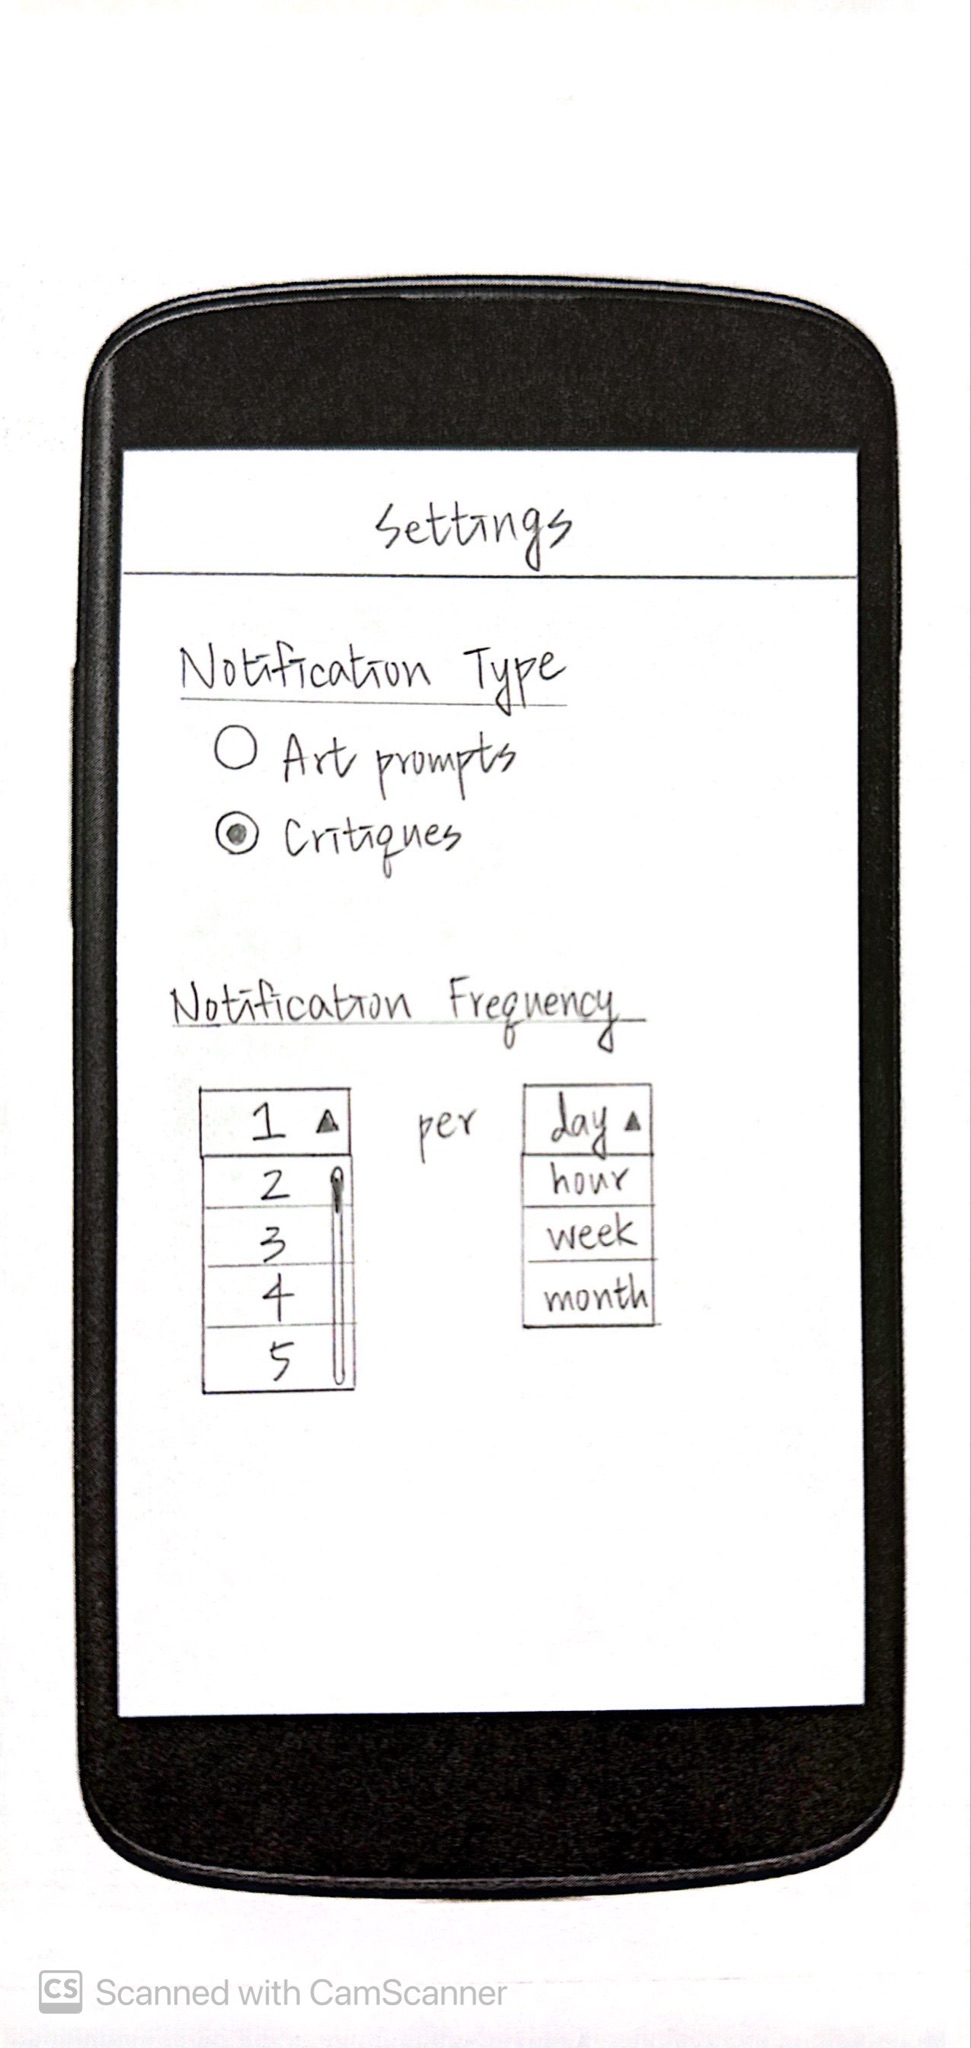 Settings
Notification Type
Art prompts
Critiques
Notification Frequency
1 per day
2 hour
3 week
4 month
5
CS Scanned with CamScanner